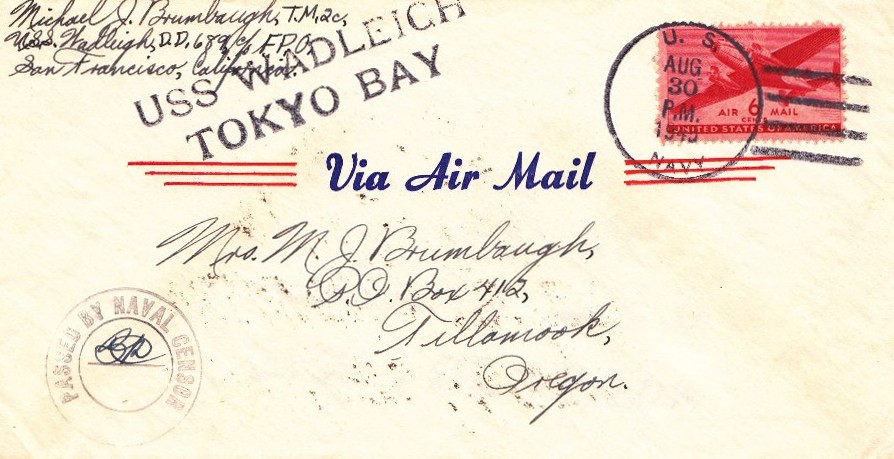 Michael J. Brumbaugh, T.M.2c,
U.S.S. Wadleigh, D.D. 689, c/o F.P.O.
San Francisco, California.
USS WADLEIGH
TOKYO BAY
U. S.
AUG
30
P.M.
1945
NAVY
AIR 6 MAIL
CENTS
UNITED STATES OF AMERICA
Via Air Mail
Mrs. M. J. Brumbaugh,
P.O. Box 412,
Tillamook,
Oregon.
PASSED BY NAVAL CENSOR